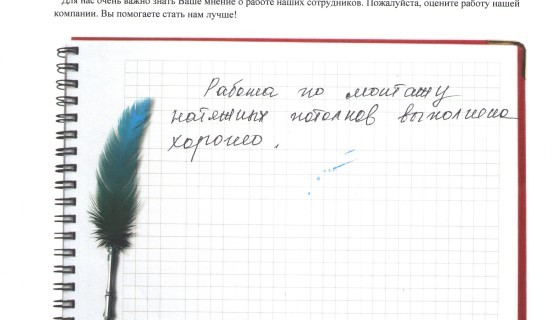 Для нас очень важно знать Ваше мнение о работе наших сотрудников. Пожалуйста, оцените работу нашей
компании. Вы помогаете стать нам лучше!
Работа по монтажу
натяжных потолков выполнена
хорошо.